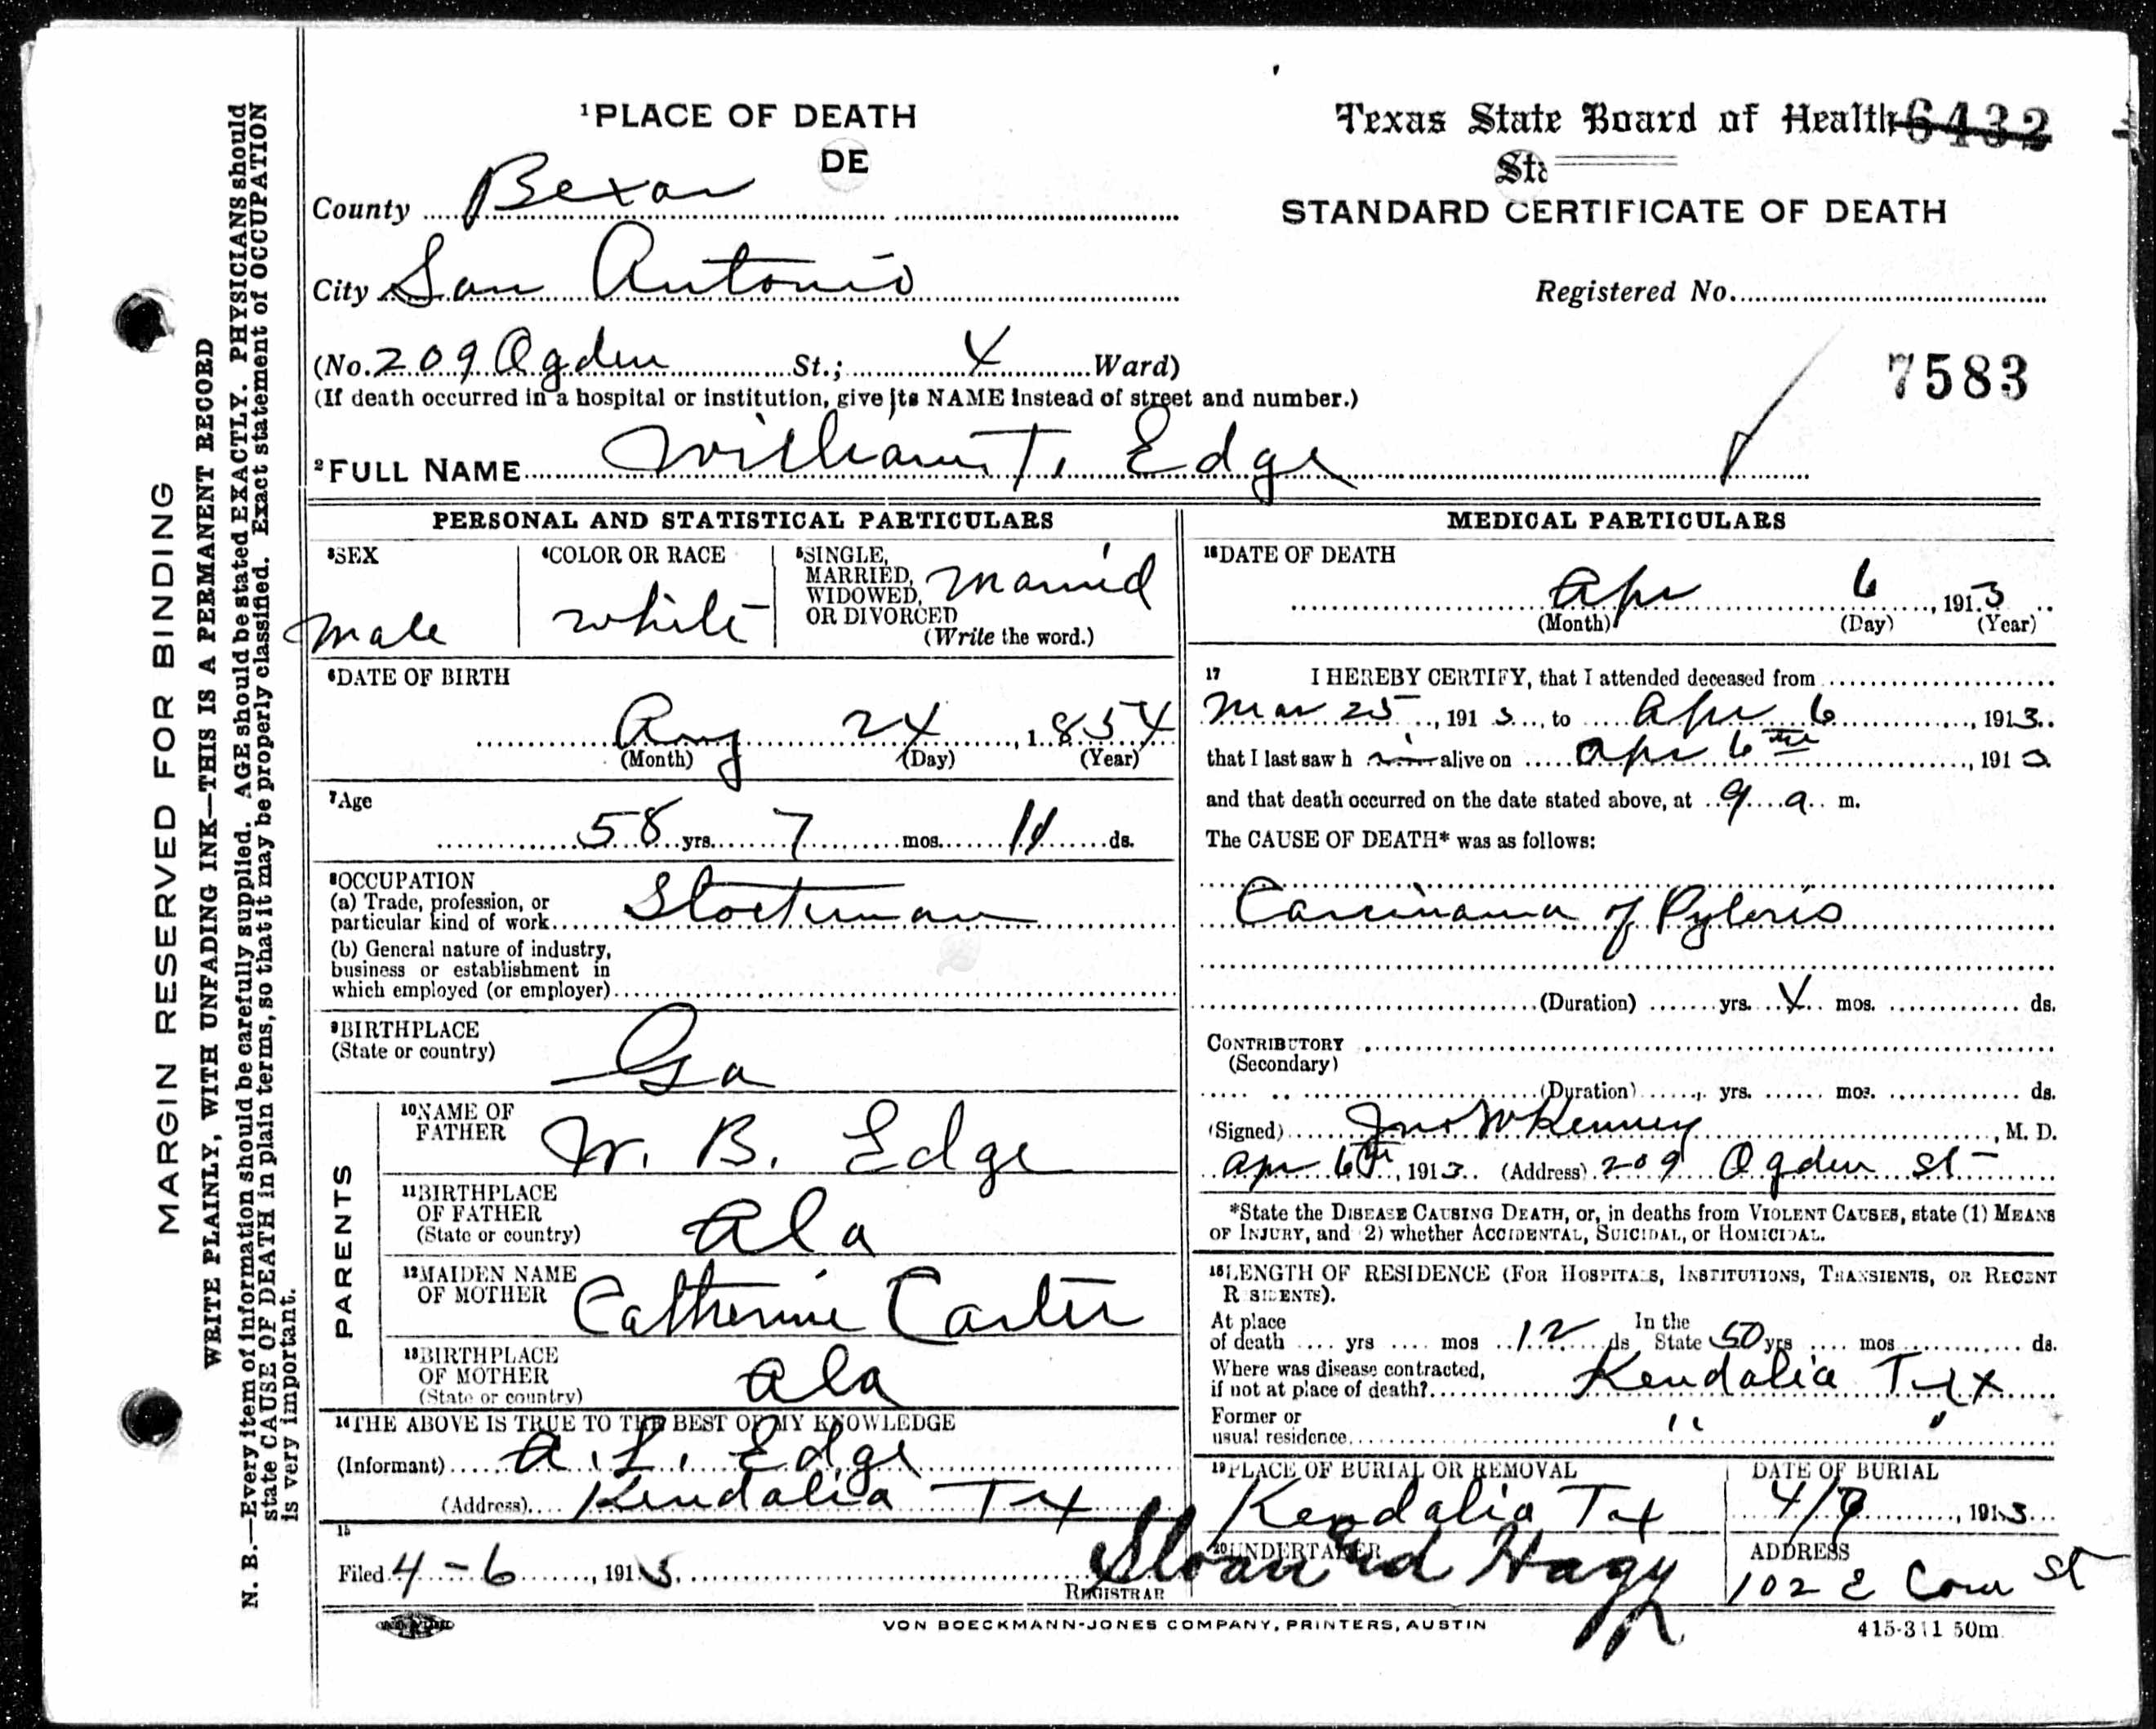 MARGIN RESERVED FOR BINDING
WRITE PLAINLY, WITH UNFADING INK—THIS IS A PERMANENT RECORD
N. B.—Every item of information should be carefully supplied. AGE should be stated EXACTLY. PHYSICIANS should
state CAUSE OF DEATH in plain terms, so that it may be properly classified. Exact statement of OCCUPATION
is very important.
1PLACE OF DEATH
DE
County Bexar
City San Antonio
(No. 209 Ogden St.; 4 Ward)
(If death occurred in a hospital or institution, give its NAME instead of street and number.)
Texas State Board of Health 6432
Sta
STANDARD CERTIFICATE OF DEATH
Registered No.
7583
2FULL NAME William T. Edge
PERSONAL AND STATISTICAL PARTICULARS
3SEX
male
4COLOR OR RACE
white
5SINGLE,
MARRIED,
WIDOWED,
OR DIVORCED
(Write the word.)
married
6DATE OF BIRTH
Aug 24, 1854
(Month) (Day) (Year)
7Age
58 yrs. 7 mos. 11 ds.
8OCCUPATION
(a) Trade, profession, or
particular kind of work Stockman
(b) General nature of industry,
business or establishment in
which employed (or employer)
9BIRTHPLACE
(State or country)
Ga
PARENTS
10NAME OF
FATHER
W. B. Edge
11BIRTHPLACE
OF FATHER
(State or country)
Ala
12MAIDEN NAME
OF MOTHER
Catherine Carter
13BIRTHPLACE
OF MOTHER
(State or country)
Ala
14THE ABOVE IS TRUE TO THE BEST OF MY KNOWLEDGE
(Informant) A. L. Edge
(Address) Kendalia Tex
15
Filed 4-6, 1913.
REGISTRAR
MEDICAL PARTICULARS
16DATE OF DEATH
Apr 6, 1913
(Month) (Day) (Year)
17 I HEREBY CERTIFY, that I attended deceased from
Mar 25, 1913, to Apr 6, 1913.
that I last saw h im alive on Apr 6th, 1913
and that death occurred on the date stated above, at 9 a. m.
The CAUSE OF DEATH* was as follows:
Carcinama of Pyloris
(Duration) yrs. 4 mos. ds.
CONTRIBUTORY
(Secondary)
(Duration) yrs. mos. ds.
(Signed) Jno W Kenney, M. D.
Apr 6th, 1913. (Address) 209 Ogden st
*State the DISEASE CAUSING DEATH, or, in deaths from VIOLENT CAUSES, state (1) MEANS
OF INJURY, and 2) whether ACCIDENTAL, SUICIDAL, or HOMICIDAL.
18LENGTH OF RESIDENCE (FOR HOSPITALS, INSTITUTIONS, TRANSIENTS, OR RECENT
RESIDENTS).
At place
of death yrs mos 12 ds In the
State 50 yrs mos. ds.
Where was disease contracted,
if not at place of death? Kendalia Tex
Former or
usual residence " "
19PLACE OF BURIAL OR REMOVAL
Kendalia Tex
DATE OF BURIAL
4/7, 1913
20UNDERTAKER
Sloan and Hagy
ADDRESS
102 E Com st
VON BOECKMANN-JONES COMPANY, PRINTERS, AUSTIN
415-311 50m